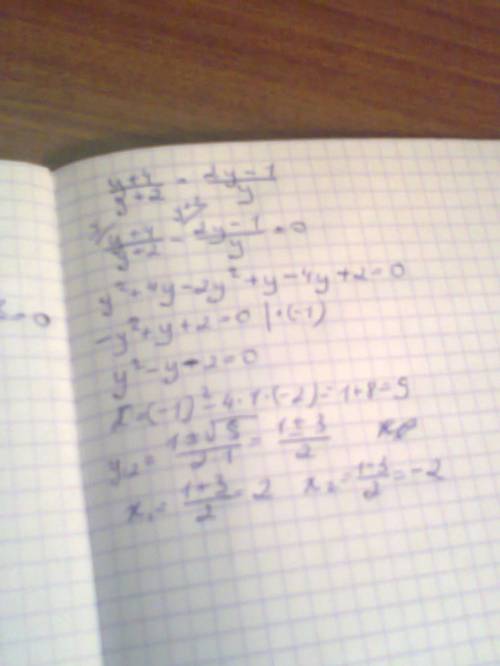 (y+4)/(y+2) = (2y-1)/y
y/ (y+4)/(y+2) - y+2/ (2y-1)/y = 0
y²+4y-2y²+y-4y+2=0
-y²+y+2=0 |·(-1)
y²-y-2=0
D=(-1)²-4·1·(-2)=1+8=9
y₂= (1±√9)/(2·1) = (1±3)/2
x₁= (1+3)/2 = 2 x₂= (1-3)/2 = -2
3=0